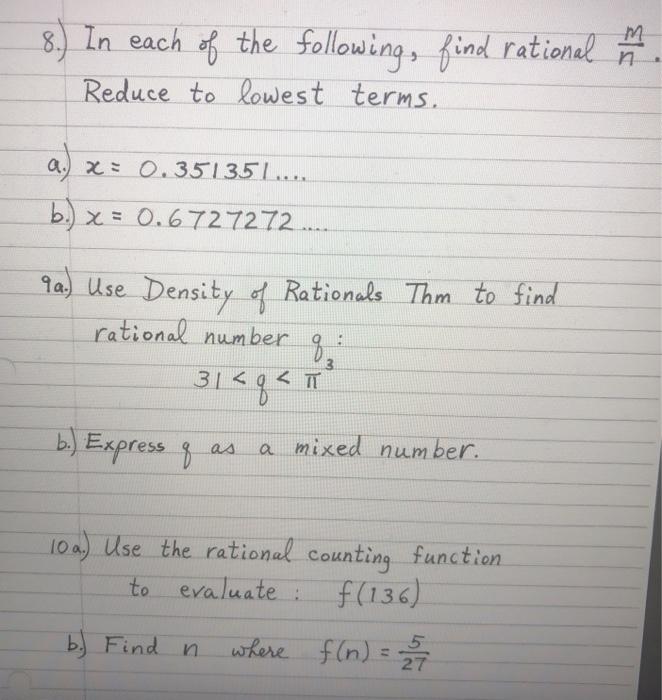 8.) In each of the following, find rational m/n.
Reduce to lowest terms.
a.) x = 0.351351....
b.) x = 0.6727272....
9a.) Use Density of Rationals Thm to find
rational number q:
31 < q < π³
b.) Express q as a mixed number.
10a.) Use the rational counting function
to evaluate: f(136)
b.) Find n where f(n) = 5/27